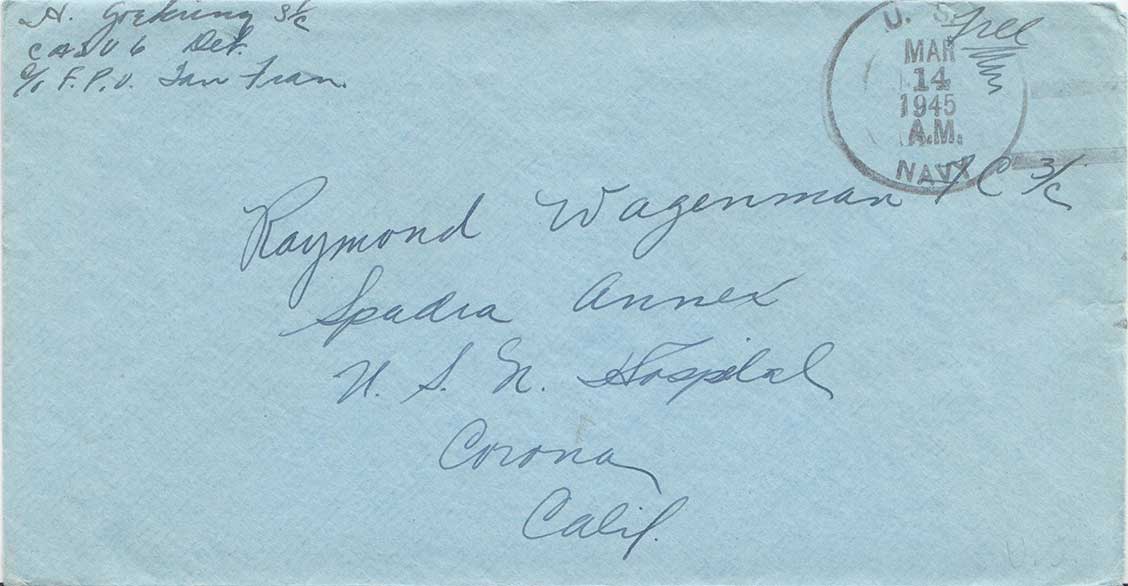 H. Goehring S 1/c
CASU 6 Det.
c/o F.P.O. San Fran.
Free
U. S.
MAR
14
1945
A.M.
NAVY
Raymond Wagenman 3/c
Spadra Annex
U. S. N. Hospital
Corona
Calif.